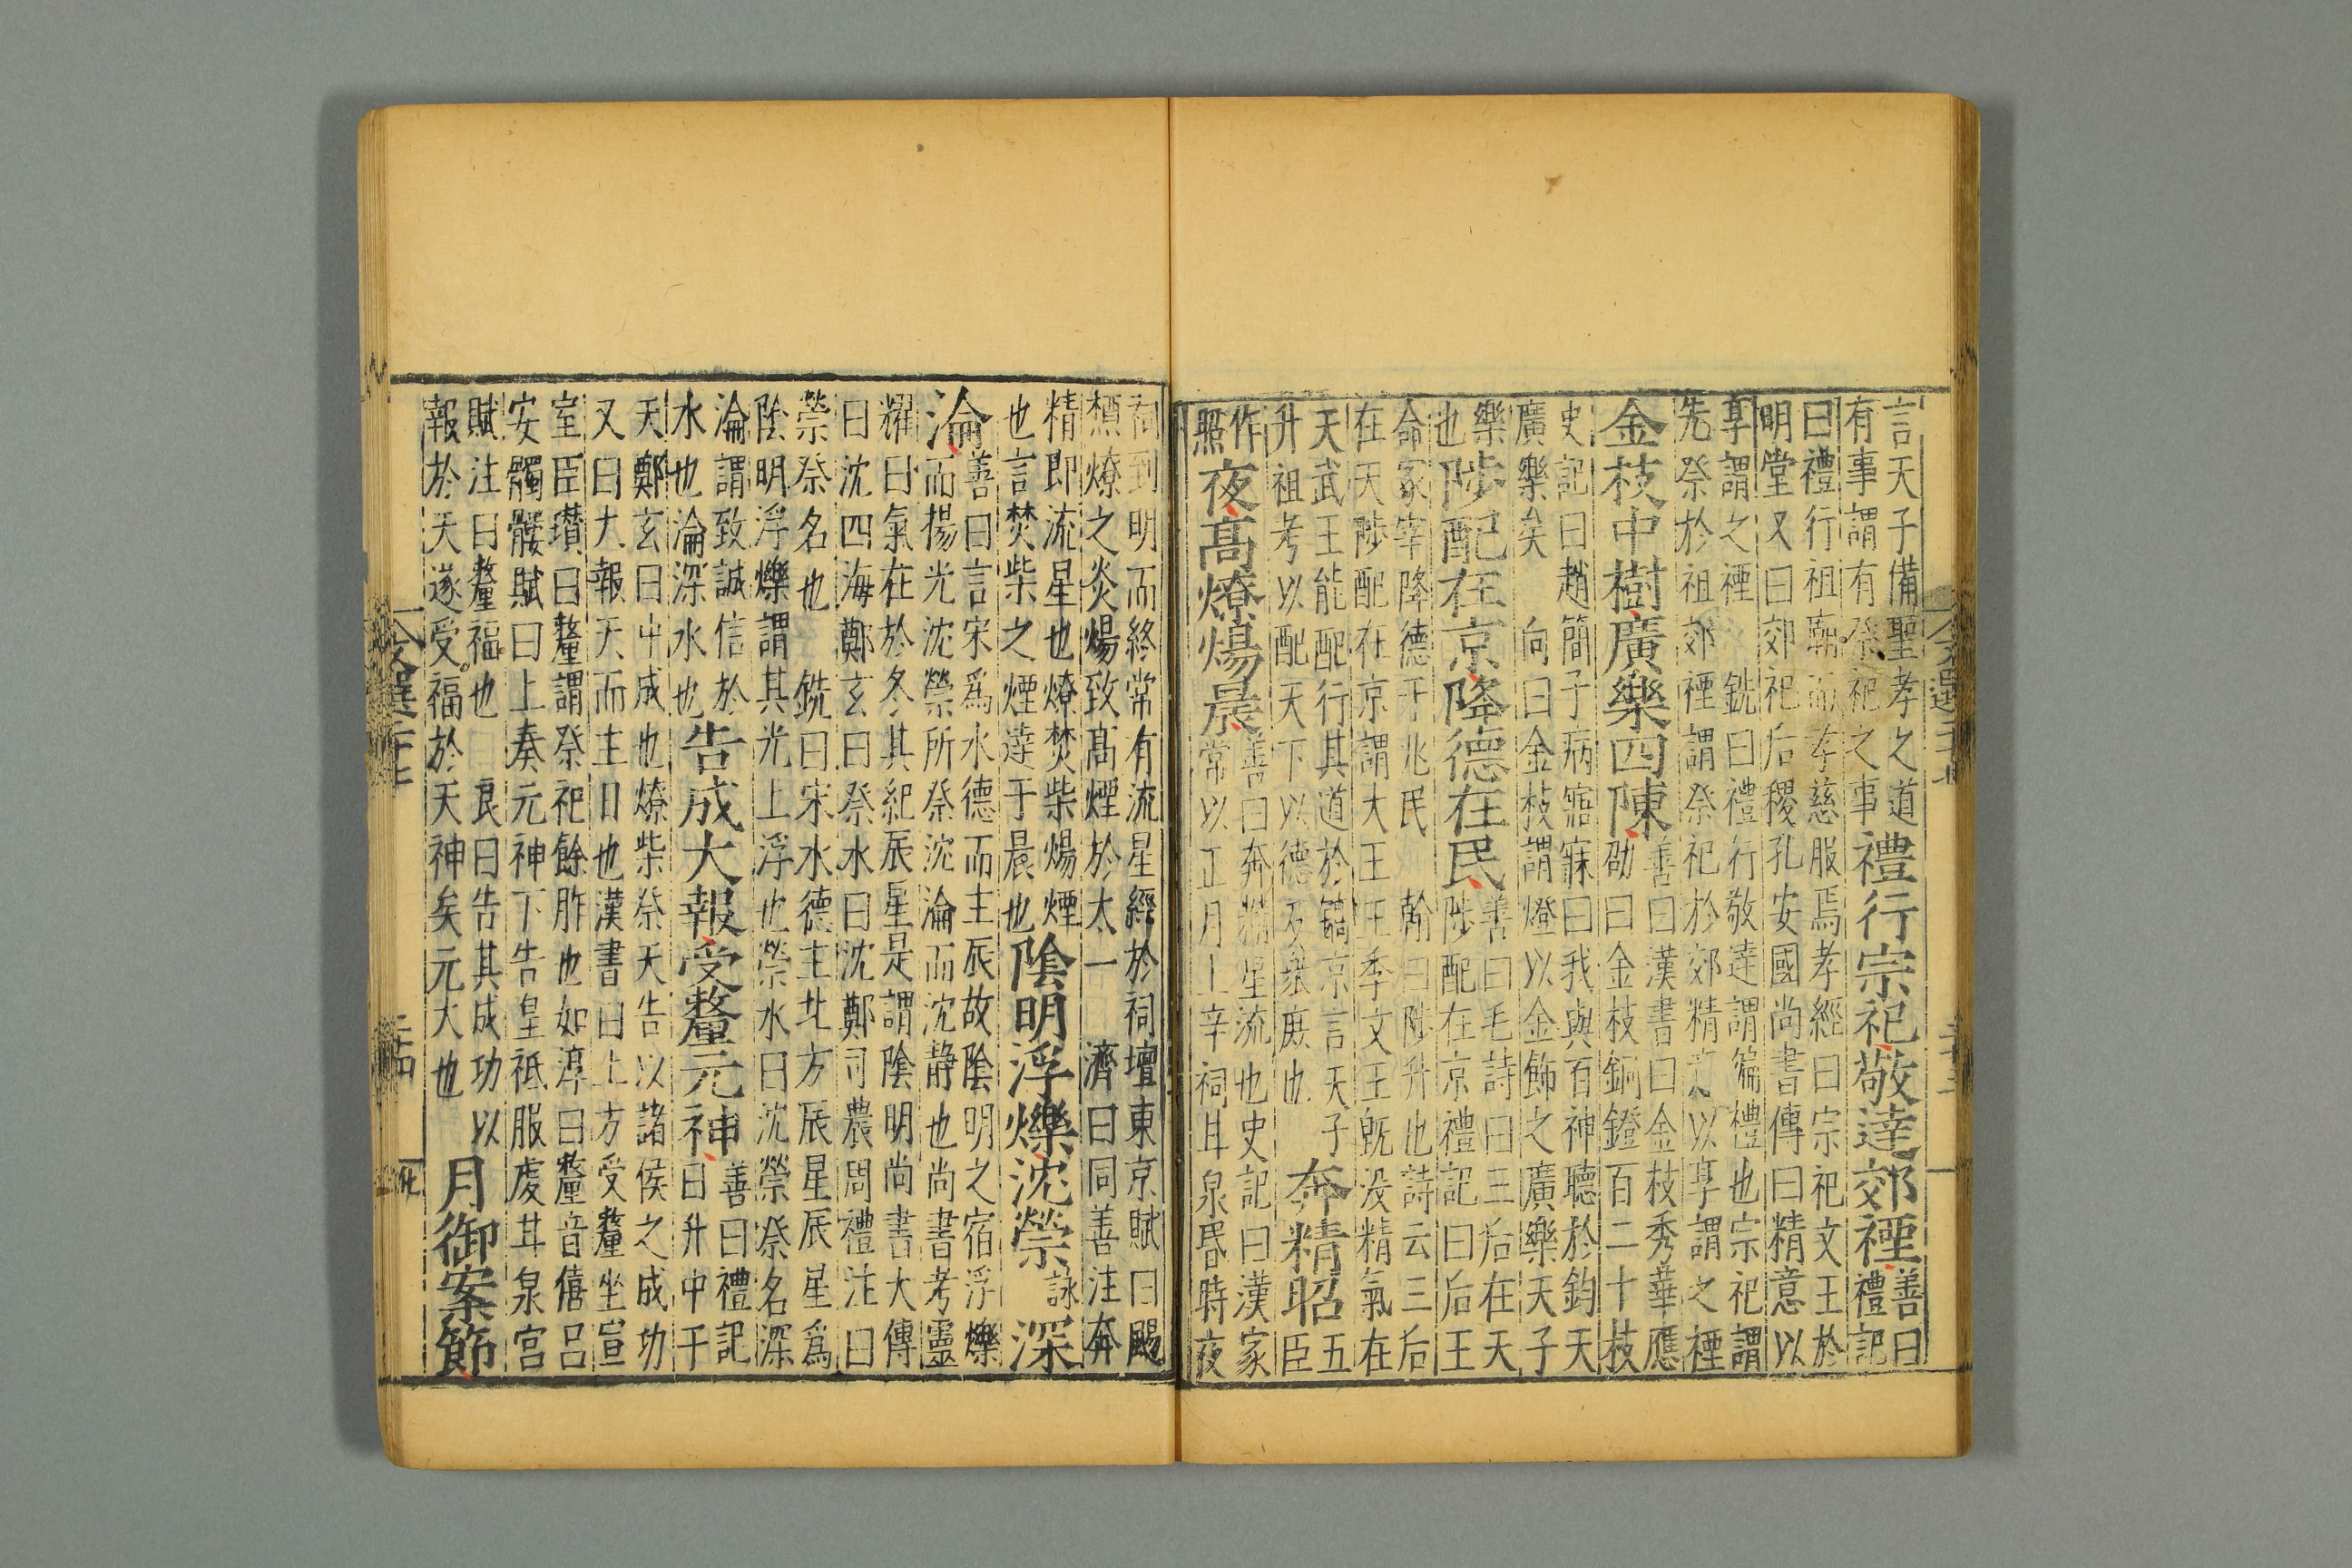 言天子備聖孝之道
有事謂有祭祀之事
禮行宗祀敬達郊禋
善曰
禮記
曰禮行祖廟而孝慈服焉孝經曰宗祀文王於
明堂又曰郊祀后稷孔安國尚書傳曰精意以
享謂之禋 銑曰禮行敬達謂徧禮也宗祀謂
先祭於祖郊禋謂祭祀於郊精意以享謂之禋
金枝中樹廣樂四陳
善曰漢書曰金枝秀華應
劭曰金枝銅鐙百二十枝
史記曰趙簡子病寤寐曰我與百神聽於鈞天
廣樂矣 向曰金枝謂燈以金飾之廣樂天子
樂
也
陟配在京降德在民
善曰毛詩曰三后在天
陟配在京禮記曰后王
命冢宰降德于兆民 翰曰陟升也詩云三后
在天陟配在京謂大王王季文王旣没精氣在
天武王能配行其道於鎬京言天子
升祖考以配天下以德及衆庶也
奔精昭
五
臣
作
照
夜高燎煬晨
善曰奔精星流也史記曰漢家
常以正月上辛祠甘泉昏時夜
祠到明而終常有流星經於祠壇東京賦曰颺
槱燎之炎煬致高煙於太一 濟曰同善注奔
精即流星也燎焚柴煬煙
也言焚柴之煙達于晨也
陰明浮爍沈禜
詠
深
淪
善曰言宋爲水德而主辰故陰明之宿浮爍
而揚光沈禜所祭沈淪而沈静也尚書考靈
耀曰氣在於冬其紀辰星是謂陰明尚書大傳
曰沈四海鄭玄曰祭水曰沈鄭司農周禮注曰
禜祭名也 銑曰宋水德主北方辰星辰星爲
陰明浮爍謂其光上浮也禜水曰沈禜祭名深
淪謂致誠信於
水也淪深水也
告成大報受釐元神
善曰禮記
曰升中于
天鄭玄曰中成也燎柴祭天告以諸侯之成功
又曰大報天而主日也漢書曰上方受釐坐宣
室臣瓉曰釐謂祭祀餘胙也如淳曰釐音僖呂
安髑髏賦曰上奏元神下告皇祇服虔甘泉宮
賦注曰釐福也 良曰告其成功以
報於天遂受福於天神矣元大也
月御案節
文選二十七
二十四